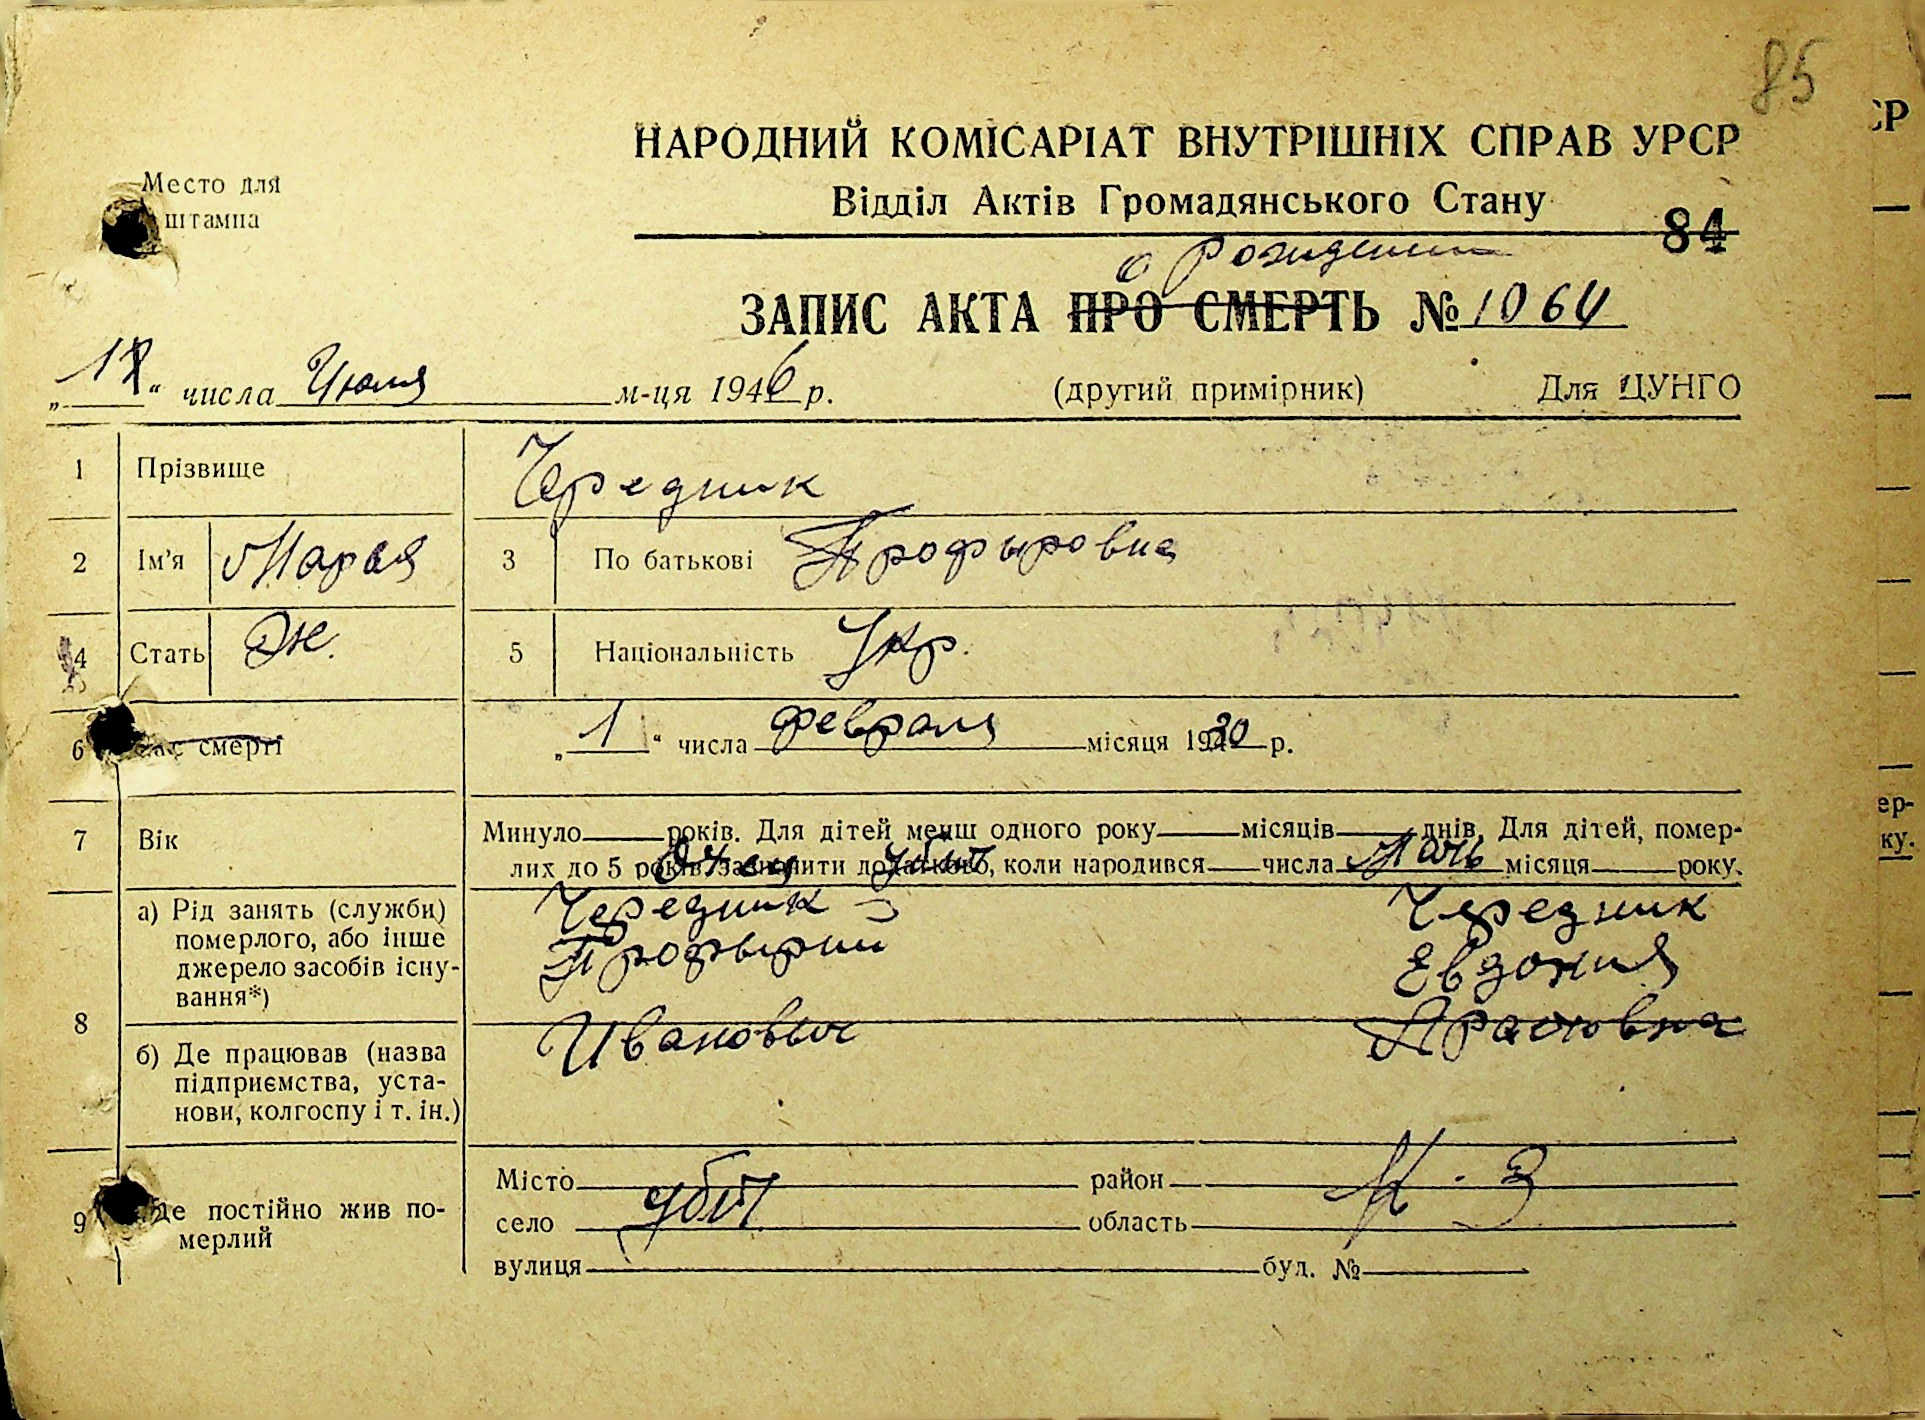 85
НАРОДНИЙ КОМІСАРІАТ ВНУТРІШНІХ СПРАВ УРСР
Место для
штампа
Відділ Актів Громадянського Стану
84
о Рождении
ЗАПИС АКТА ПРО СМЕРТЬ № 1064
„ “ числа Июля м-ця 1946 р. (другий примірник) Для ЦУНГО
1 Прізвище Чередник
2 Ім’я Мария 3 По батькові Профыровна
4 Стать Ж. 5 Національність Укр.
6 смерті „ 1 “ числа февраля місяця 1920 р.
7 Вік Минуло року. Для дітей менш одного року місяців днів. Для дітей, помер-
лих до 5 років зазначити додатково, коли народився числа місяця року.
Отец Мать
8 а) Рід занять (служби)
померлого, або інше
джерело засобів існу-
вання*)
Чередник Чередник
Профырий Евдокия
Иванович
б) Де працював (назва
підприємства, уста-
нови, колгоспу і т. ін.)
9 Де постійно жив по-
мерлий
Місто район
село область
убит М-З
вулиця буд. №
СР
ер-
ку.